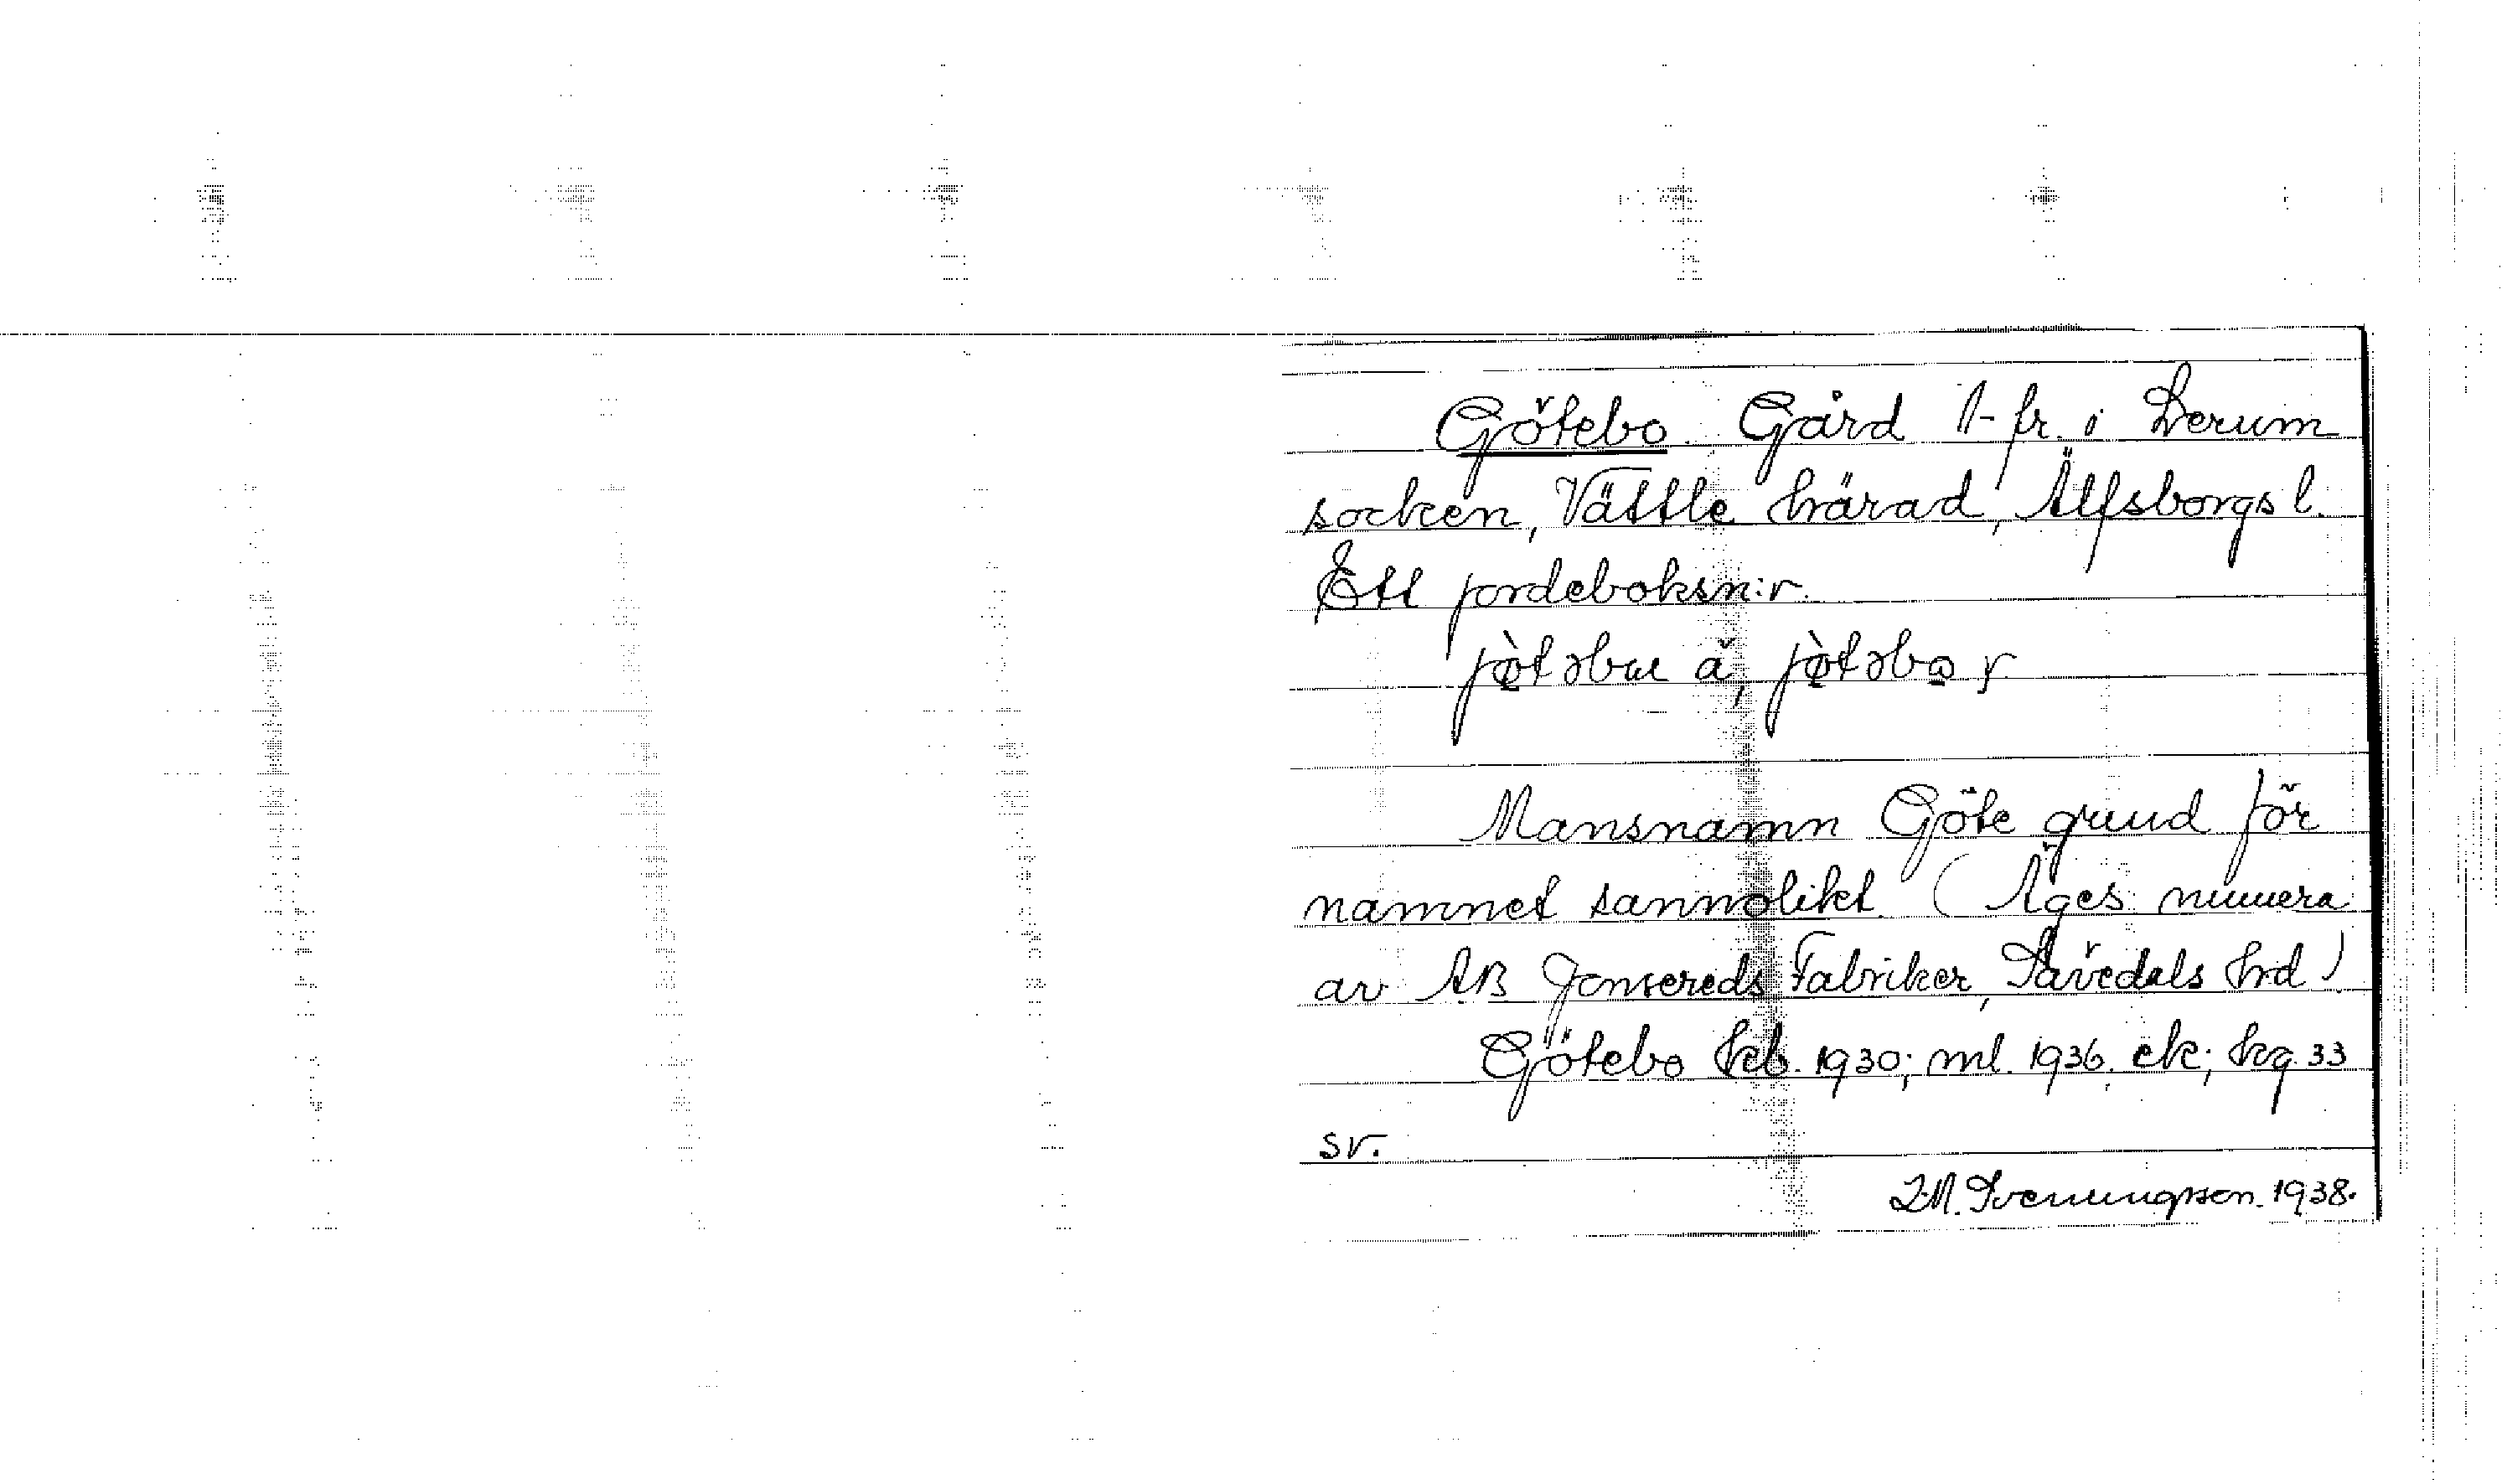 Götebo. Gård 1-fr. i Lerum
socken, Vättle härad, Älfsborgs l.
Ett jordeboksn:r.
jø̀təbɯ ä, jø̀təbo y.
Mansnamn Göte grund för
namnet sannolikt. (Äges numera
av AB Jonsereds Fabriker, Sävedals hrd)
Götebo kb. 1930; ml. 1936, ek; kg. 33
sv.
I.M. Svenungsson. 1938.